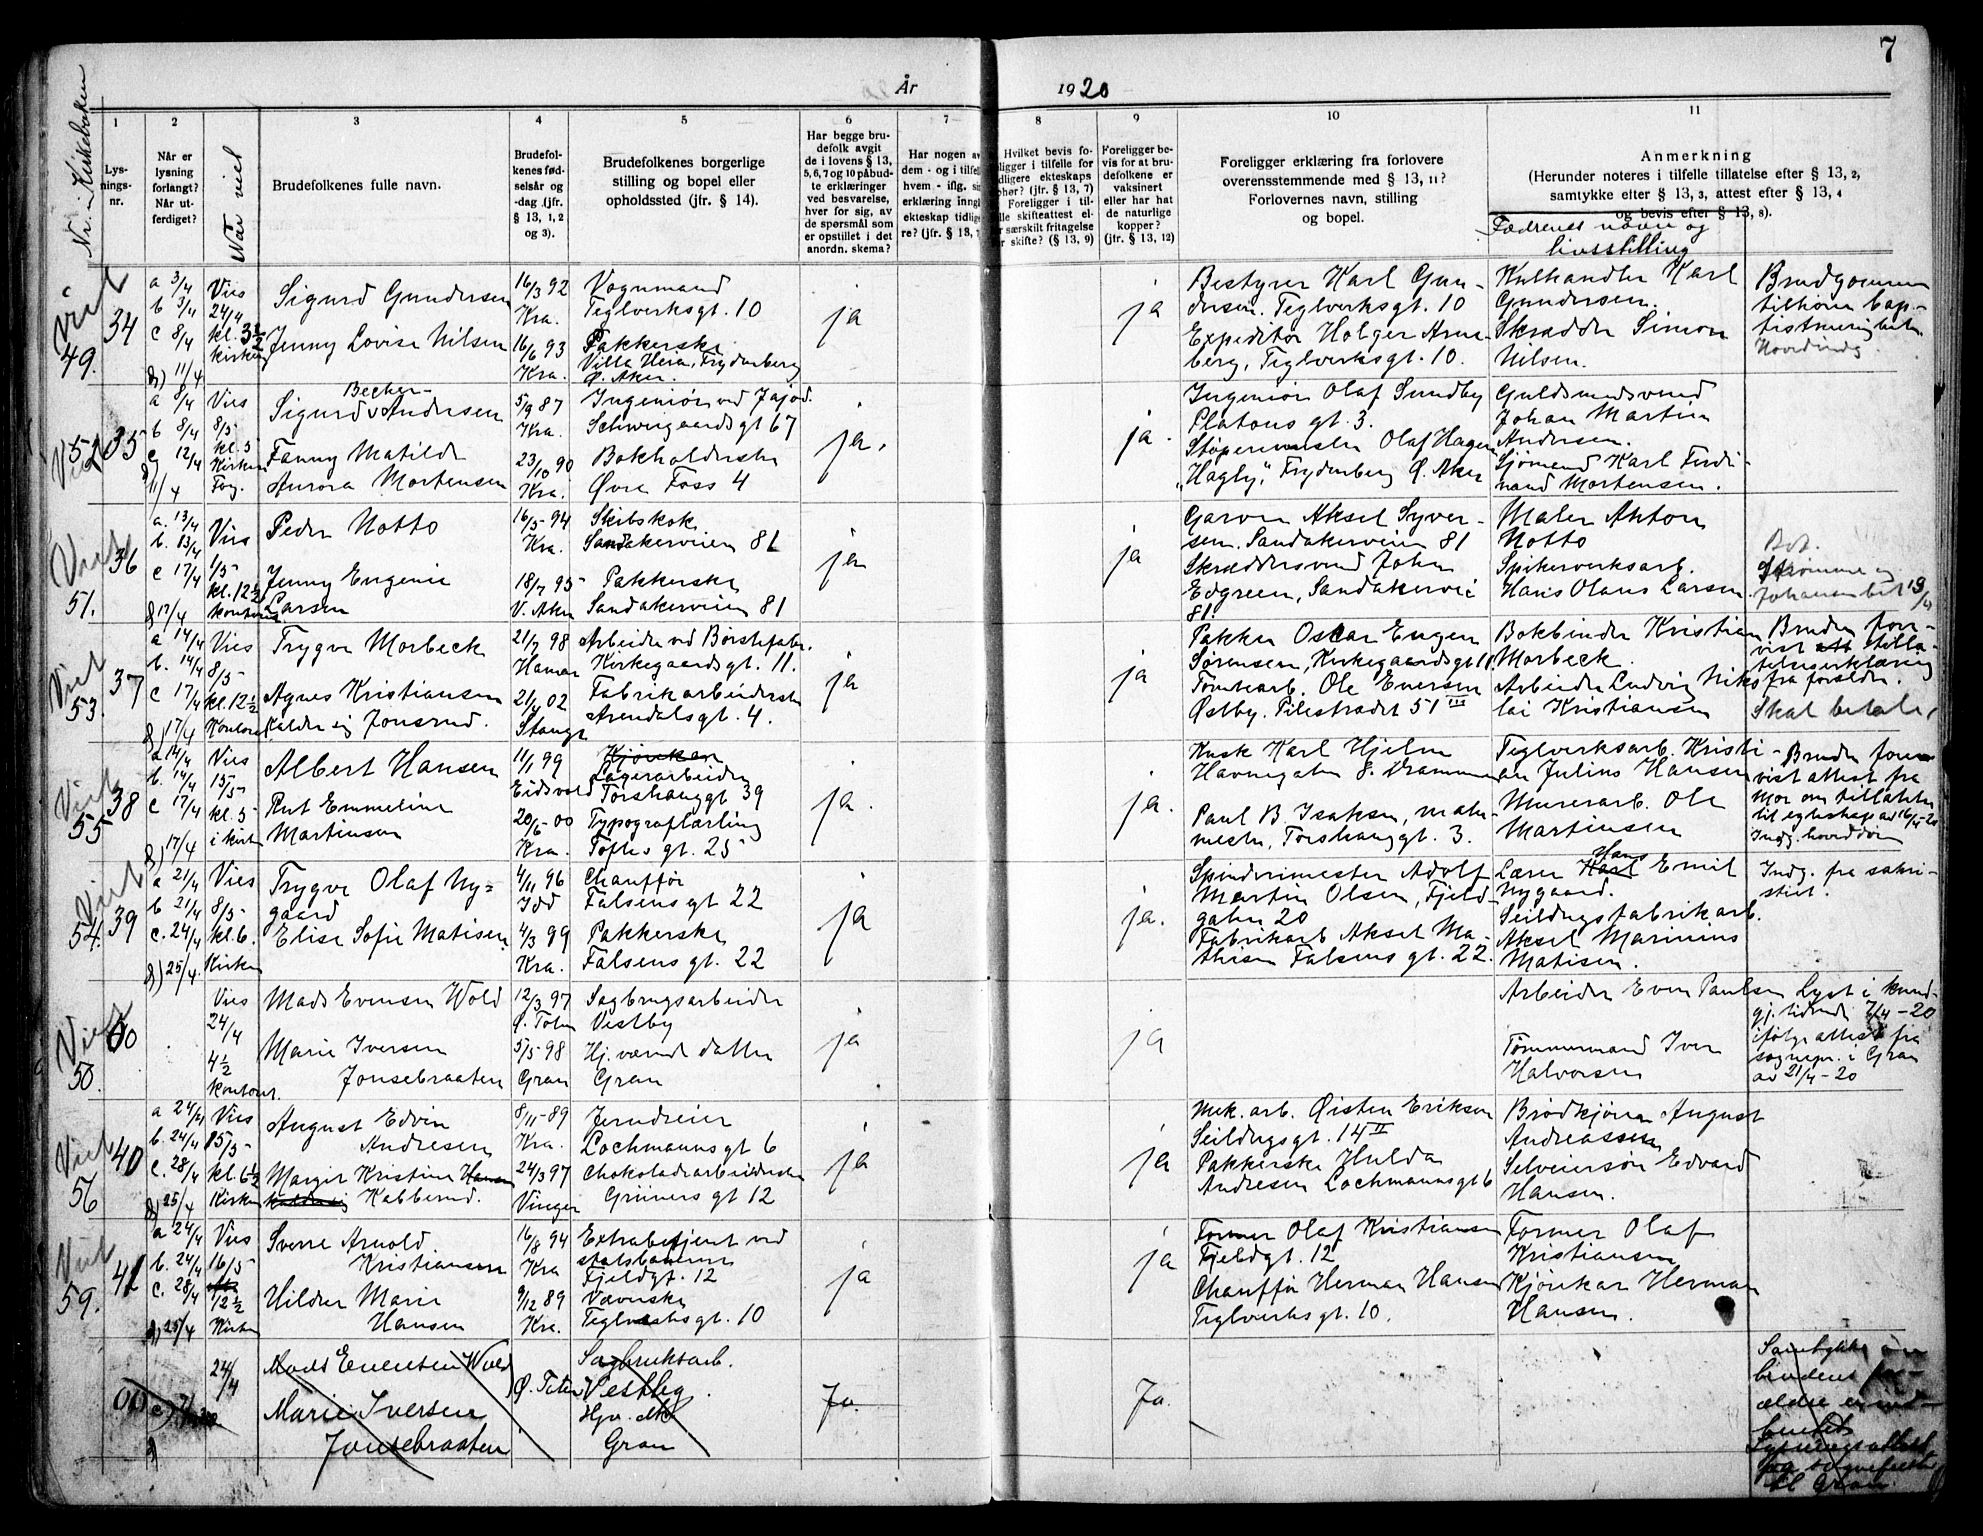 7
År 1920
Nr. i Kirkeboken
1
Lysnings-
nr.
2
Når er
lysning
forlangt?
Når ut-
ferdiget?
Når viet
3
Brudefolkenes fulle navn.
4
Brudefol-
kenes fød-
selsår og
-dag (jfr.
§ 13, 1, 2
og 3).
5
Brudefolkenes borgerlige
stilling og bopel eller
opholdssted (jfr. § 14).
6
Har begge bru-
defolk avgit
de i lovens § 13,
5, 6, 7 og 10 påbud-
te erklæringer
ved besvarelse,
hver for sig, av
de spørsmål som
er opstillet i det
anordn. skema?
7
Har nogen av
dem - og i tilfel
hvem - iflg. si
erklæring inngå
ekteskap tidlige
re? (jfr. § 13,
8
Hvilket bevis fo-
ligger i tilfelle for
dligere ekteskaps
phør? (jfr. § 13, 7)
Foreligger i til-
lle skifteattest el-
r særskilt fritagelse
r skifte? (§ 13, 9)
9
Foreligger be-
vis for at bru-
defolkene er
vaksinert
eller har hat
de naturlige
kopper?
(jfr. § 13, 12)
10
Foreligger erklæring fra forlovere
overensstemmende med § 13, 11?
Forlovernes navn, stilling
og bopel.
11
Anmerkning
(Herunder noteres i tilfelle tillatelse efter § 13, 2,
samtykke efter § 13, 3, attest efter § 13, 4
og bevis efter § 13, 8).
Fædrenes navn og
livsstilling
Viet
49.
34
a 3/4
b 3/4
c 8/4
d) 11/4
Vies
24/4
kl. 3½
kirken
Sigurd Gundersen
Jenny Lovise Nilsen
16/3 92
Kra.
16/6 93
Kra.
Vognmand
Teglverksgt. 10
Pakkerske
Villa Heia, Frydenberg
Ø. Aker.
ja
ja
Bestyrer Karl Gun-
dersen. Teglverksgt. 10
Expeditør Holger Arne-
berg, Teglverksgt. 10.
Kulhandler Karl
Gundersen.
Skrædder Simon
Nilsen.
Brudgommen
tilhører bap-
tistmenigheten
Hovedindg.
Viet
52
35
a 8/4
b 8/4
c 12/4
d) 11/4
Vies
8/5
kl. 5
Kirken
Becker-
Sigurd v Andersen
Fanny Matilde
Aurora Mortensen
5/9 87
Kra.
23/10 90
Kra.
Ingeniør ved
Schweigaardsgt 67
Bokholderske
Øvre Foss 4
ja.
ja.
Ingeniør Olaf Sundby
Platous gt. 3.
Støperimester Olaf Hagen
"Hagly", Frydenberg Ø. Aker
Guldsmedsvend
Johan Martin
Andersen.
Sjømand Karl Ferdi-
nand Mortensen.
Viet
51.
36
a. 13/4
b. 13/4
c 17/4
d 17/4
Vies
1/5
kl. 12½
kontoret
Peder Notto
Jenny Eugenie
Larsen
16/5-94
Kra.
18/7 95
V. Aker
Skibskok
Sandakerveien 81
Pakkerske
Sandakerveien 81
ja
ja
Garver Aksel Syver-
sen. Sandakerveien 81
Skræddersvend John
Edgreen, Sandakervei
81.
Maler Anton
Notto
Spikerverksarb.
Hans Olaus Larsen
Strømmen
Johansen bet 13/4
Viet
53.
37
a 14/4
b. 14/4
c 17/4
d) 17/4
Vies
8/5
kl. 12½
Kontoret
Trygve Morbeck
Agnes Kristiansen
kalder sig Jonsrud.
21/7 98
Hamar
21/4 02
Stange
Arbeider ved Børstefabr.
Kirkegaardsgt. 11.
Fabrikarbeiderske
Arendalsgt. 4.
ja
ja
Pakker Oscar Eugen
Sørensen, Kirkegaardsgt 11
Tomtearb. Ole Evensen
Østby. Pilestrædet 51 III
Bokbinder Kristian
Morbeck.
Arbeider Ludvig Niko
lai Kristiansen
Bruden fore-
vist tilla-
telseserklæring
fra forældre.
Skal betale.
Viet
55
38
a 14/4
b. 14/4
c 17/4
d) 17/4
Vies
15/5
kl. 5
i kirken
Albert Hansen
Rut Emmeline
Martinsen
11/1 99
Eidsvold
20/6-00
Kra.
Kjørekar
Lagerarbeider
Torshauggt 39
Typograflærling
Toftes gt. 25
ja.
ja.
Kusk Karl Hjelm
Havnegaten 8. Drammen
Paul B. Isaksen, maler
mester, Torshauggt. 3.
Teglverksarb. Kristi-
an Julius Hansen
Murerarb. Ole
Martinsen
Bruden fore-
vist attest fra
mor om tillatelse
til egteskap av 16/4-20
Indg. hoveddør
Viet
54.
39
a 21/4
b 21/4
c. 24/4
d) 25/4.
Vies
8/5
kl. 6.
Kirken
Trygve Olaf Ny=
gaard
Elise Sofie Matisen
4/11 96
Idd
4/3 99
Kra.
Chauffør
Falsensgt 22
Pakkerske
Falsens gt. 22
ja
ja.
Spinderimester Adolf
Martin Olsen, Fjeld-
gaten 20
Fabrikarb Aksel Ma-
thisen Falsens gt. 22.
Hans
Lærer Karl Emil
Nygaard.
Seildugsfabrikarb.
Aksel Marinius
Matisen.
Indg. fra sakri-
stiet.
Viet
50.
00
Vies
24/4
4½
kontoret.
Mads Evensen Wold
Marie Iversen
Jonsebraaten
12/3 97
Ø. Toten
5/5-98
Gran
Sagbrugsarbeider
Vestby
Hj. værende datter
Gran
ja
ja
Arbeider Even Paulsen
Tømmermand Iver
Halvorsen
Lyst i kund-
gj. tidende 7/4-20
ifølge attest fra
sognepr. i Gran
av 21/4-20
Viet
56
40
a 24/4
b. 24/4
c. 28/4
d) 25/4
Vies
15/5
kl. 6½
Kirken
August Edvin
Andresen
Margit Kristine Hansen
kalder sig Kabberud.
8/11-89
Kra.
24/3 97
Vinger
Jerndreier
Lochmannsgt 6
Chokoladearbeiderske
Grüners gt 12
ja
ja
Mek. arb. Øisten Eriksen
Seildugsgt. 14 II
Pakkerske Hulda
Andresen Lochmannsgt 6
Brødkjører August
Andreassen
Selveiersøn Edvard
Hansen.
Viet
59.
41
a 24/4
b. 24/4
c. 28/4
d) 25/4
Vies
16/5
12½
Kirken
Sverre Arnold
Kristiansen
Hildur Marie
Hansen
16/8 94
Kra
9/12 89
Kra.
Extrabetjent ved
statsbanerne
Fjeldgt. 12
Væverske
Teglverksgt. 10
ja
ja
Former Olaf Kristiansen
Fjeldgt. 12
Chauffør Herman Hansen
Teglverksgt. 10.
Former Olaf
Kristiansen
Kjørekar Herman
Hansen.
00
24/4
Mads Evensen Wold
Marie Iversen
Jonsebraaten
Ø. Toten
Sagbruksarb.
Vestby.
Gran
Ja.
Ja.
Samtykke
brudens for-
ældre er ind-
hentet
Lysningsattest
fra sognepresten
til Gran.